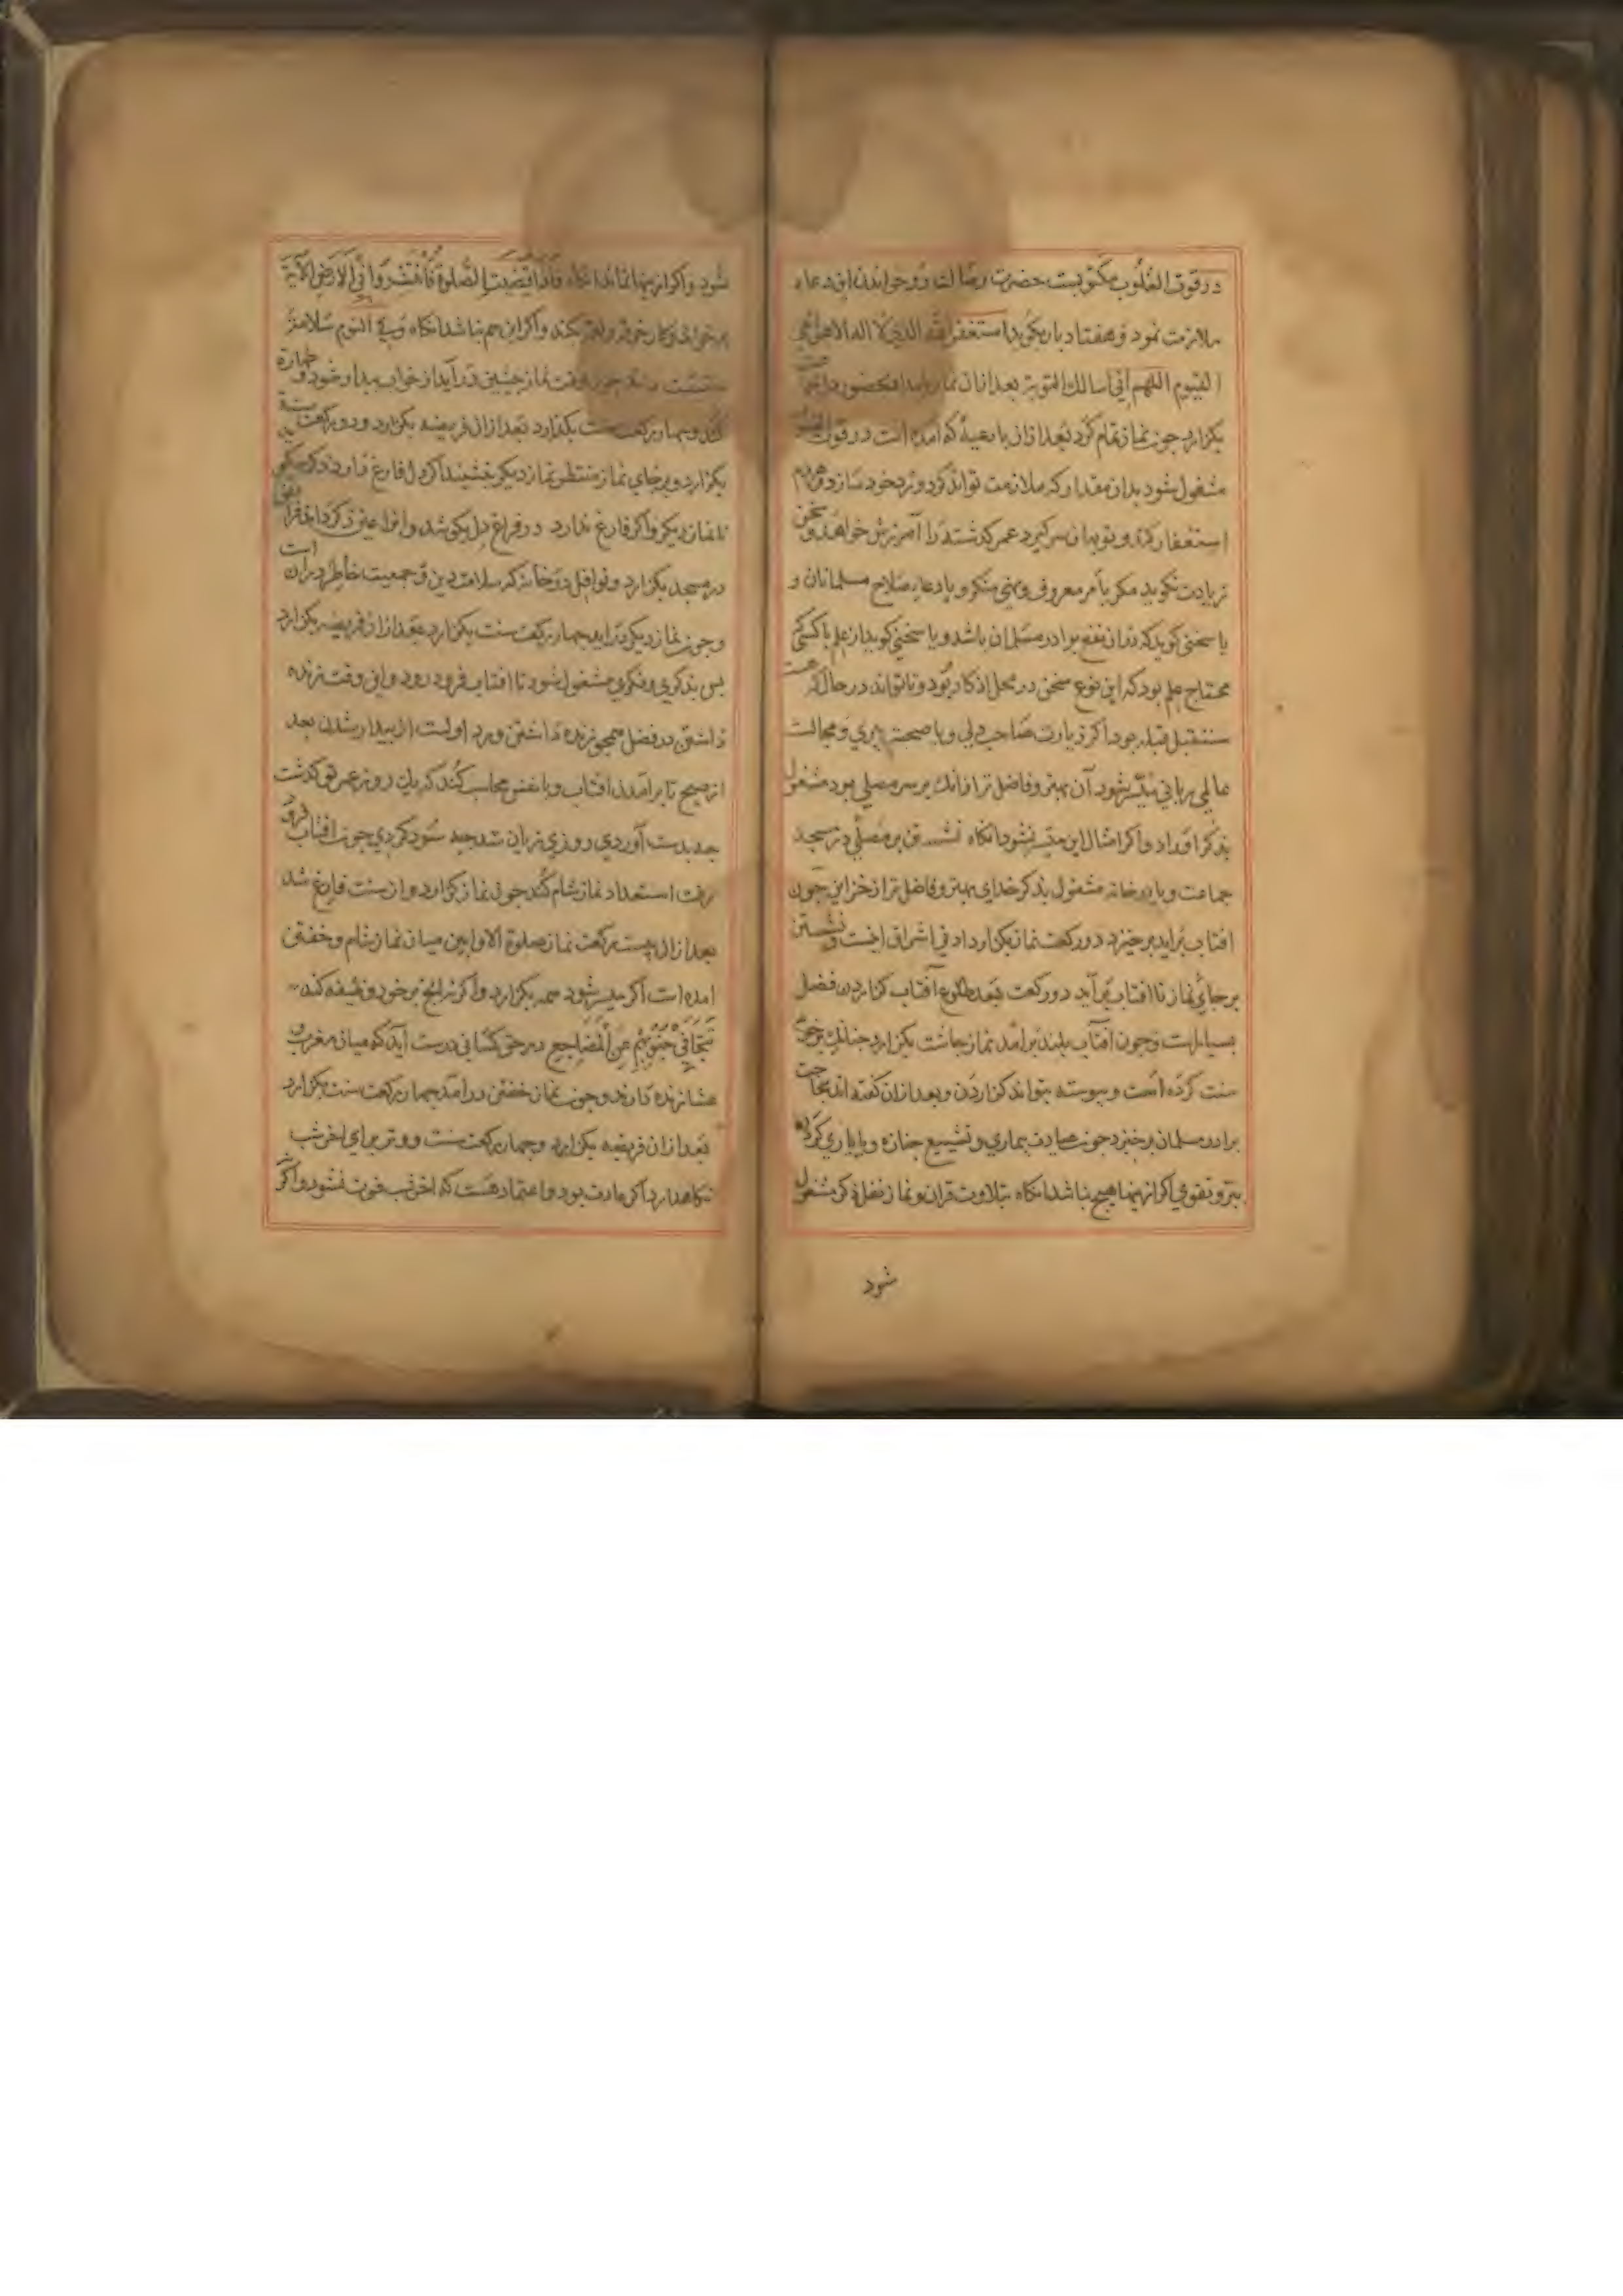 در قوت القلوب مکتوبست حضرت رسالت و خواندن این دعا
ملازمت نمود و هفتاد بار بگوید استغفر الله الذی لا اله الا هو الحی
القیوم اللهم انی اسالک التوبة بعد ازان نماز بامداد بحضور
بکزارد چون نماز تمام کرد بعد ازان بادعیهٔ که آمده است در قوت القلوب
مشغول شود بدان مقدار که ملازمت تواند کرد و ورد خود سازد
استغفار کند و توبه از سر کیرد عمر کذشته را آمرزش خواهد و سخن
زیادت نکوید مکر بامر معروفی و نهی منکر و یا دعاء صلاح مسلمانان و
یا سخنی کوید که دران نفع برادر مسلمان باشد و یا سخنی کوید از علم با کسی که
محتاج علم بود که این نوع سخن در محل اذکار بود و تا تواند در حال
مستقبل قبله بود اکر زیارت صاحب دلی و یا صحبت پیری و مجالست
عالمی ربانی میسر شود آن بهتر و فاضل تر ازانک بر سر مصلی بود مشغول
بذکر اوراد و اکر امثال این میسر نشود انکاه نشستن بر مصلی در مسجد
جماعت و یا در خانه مشغول بذکر خدای بهتر و فاضل تر از جز این چون
افتاب براید برخیزد دو رکعت نماز بکزارد ادنی اشراق اینست و نشستن
بر جای نماز تا افتاب برآید دو رکعت بعد طلوع آفتاب کزاردن فضل
بسیارست و چون افتاب بلند برآمد نماز چاشت بکزارد چنانک
سنت کرده است و پیوسته بتواند کزاردن و بعد ازان کفته اند بحاجت
برادر مسلمان برخیزد چون عیادت بیماری و تشییع جنازه و یا یاری کردن
ببر و تقوی اکر ازینها هیچ نباشد انکاه بتلاوت قران و نماز نفل و ذکر مشغول
شود
شود و اکر ازینها نماند انکاه فاذا قضیت الصلوة فانتشروا فی الارض الآیة
بر خواند و کار خود و اکر این هم نباشد انکاه و فی النوم سلامة
چون وقت نماز پیشین درآید از خواب بیدار شود و طهارة
کند و چهار رکعت سنت بکزارد بعد ازان فریضه بکزارد و دو رکعت سنة
بکزارد و بر جای نماز منتظر نماز دیکر بنشیند اکر دل فارغ دارد ذکر میکوید
تا نماز دیکر و اکر فارغ ندارد در فراغ دل بکوشد و انرا عین ذکر داند فرائض
در مسجد بکزارد و نوافل در خانه که سلامت دین و جمعیت خاطر در آن است
و چون نماز دیکر دراید چهار رکعت سنت بکزارد بعد ازان فریضه بکزارد
پس بذکری و فکری مشغول شود تا افتاب فرو رود و این وقت زنده
داشتن در فضل همچو زنده داشتن ورد اولست از بیدار شدن بعد
از صبح تا برآمدن افتاب و با نفس محاسبه کند که یک روز عمر تو کذشت
چه بدست آوردی و روزی زیان شد چه سود کردی چون افتاب فرو
رفت استعداد نماز شام کند چون نماز کزارد و از سنت فارغ شد
بعد ازان بیست رکعت نماز صلوة الاوابین میان نماز شام و خفتن
امده است اکر میسر شود همه بکزارد و اکر نه بر خود وظیفه کند
تتجافی جنوبهم عن المضاجع در حق کسانی درست آید که میان مغرب و
عشا زنده دارند و چون نماز خفتن درآمد چهار رکعت سنت بکزارد
بعد ازان فریضه بکزارد و چهار رکعت سنت و وتر برای اخر شب
نکاهدارد اکر عادت بود و اعتماد هست که اخر شب فوت نشود و اکر